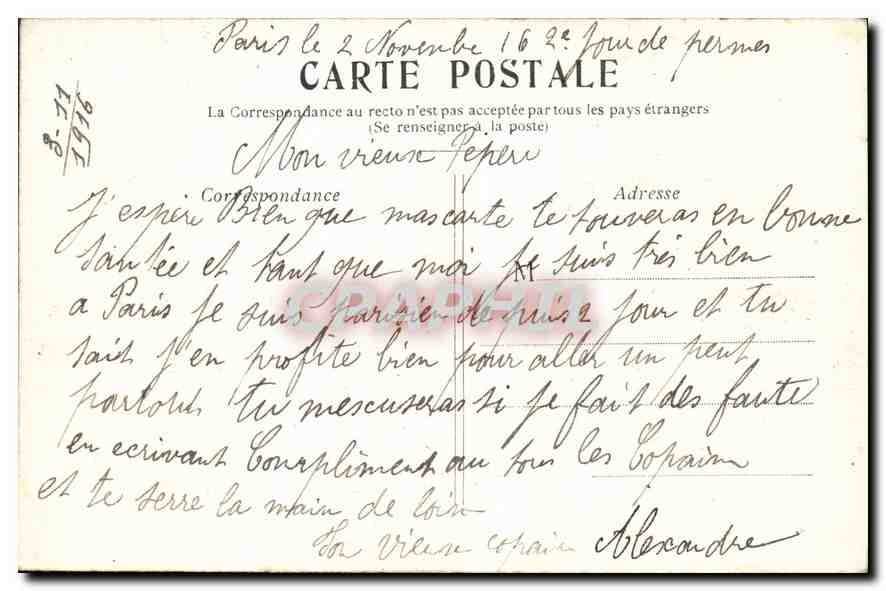 Paris le 2 Novenbe 16 2e Jour de permes
CARTE POSTALE
La Correspondance au recto n'est pas acceptée par tous les pays étrangers
(Se renseigner à la poste)
3-11
1916
Mon vieux Pépère
Correspondance
Adresse
J'espère Bien que mascarte te touveras en bonne
santée et tant que moi je suis très bien
a Paris je suis parisien depuis 2 jour et tu
sait j'en profite bien pour aller un peut
partout tu mescuseras si je fait des faute
en ecrivant Compliment au tous les Copain
et te serre la main de loin
Ton vieux copain Alexandre
CPAPHIL